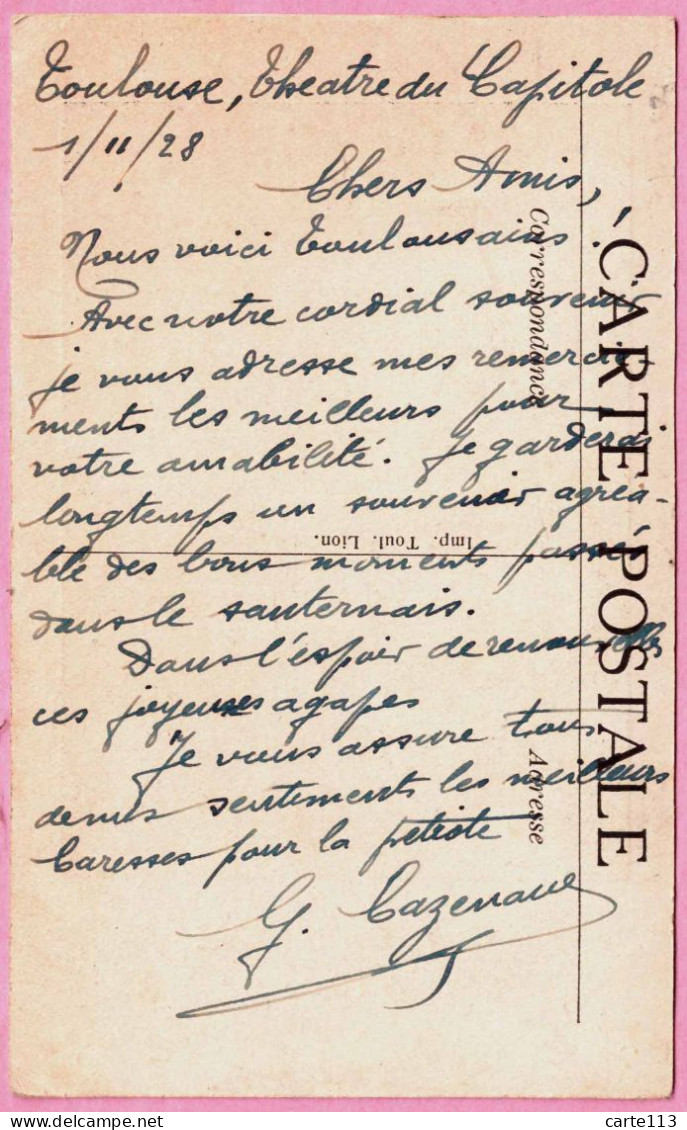 Toulouse, Theatre du Capitole
1/11/28
Chers Amis,
Nous voici Toulousains
Avec notre cordial souvenir
je vous adresse mes remercie-
ments les meilleurs pour
votre amabilité. Je garderai
longtemps un souvenir agréa-
ble des bons moments passés
dans le sauternais.
Dans l'espoir de renouveller
ces joyeuses agapes
Je vous assure tous
de mes sentiments les meilleurs
Caresses pour la petiote
G. Cazenave
CARTE POSTALE
Correspondance
Adresse
Imp. Toul. Lion.
carte113